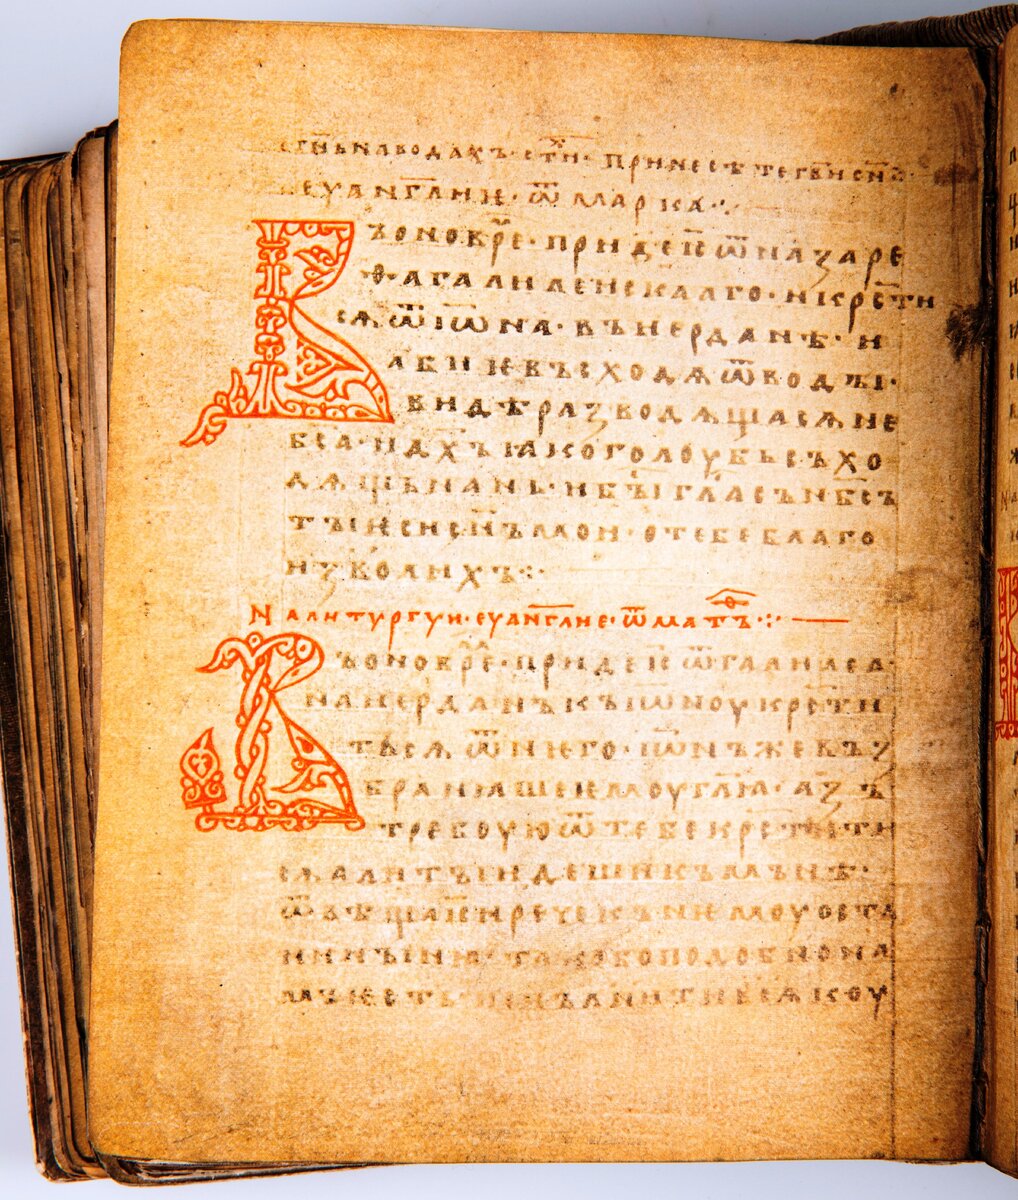 гн҃ь на водахъ· ст҃и· принесѣте гв҃и сн҃о·
еуанг҃лиѥ· ѿ марка ⁘
Въ оно крⷨе· приде ис҃ ѿ назаре
ѳа галилеискааго· и крⷭти
сѧ ѿ іѡ҃на· въ иерданѣ· и
абиѥ въсходѧ ѿ водꙑ·
видѣ разводѧща сѧ не
беса· и дх҃ъ ꙗко голоубь съхо
дѧщь на нь· и бꙑ гл҃ас съ нб҃с҃
тꙑ ѥси сн҃ъ мои· о тебе благо
изволихъ ⁘
На литургии· еуанг҃лие· ѿ матѳ҃ ⁘
Въ оно врⷨе· приде ис҃ ѿ галилеа·
на иерданъ къ іѡ҃ноу крⷭти
тъ сѧ ѿ него· іѡ҃нъ же въз
бранꙗше ѥмоу гл҃ѧ· азъ
требоую ѿ тебе крⷭтити
сѧ а ли тꙑ идеши къ мънѣ·
ѿвѣща ис҃ и рече къ нѥмоу оста
ни нꙑнꙗ· тако бо подобно на
мъ ѥсть· испълнити вьсѧкоу